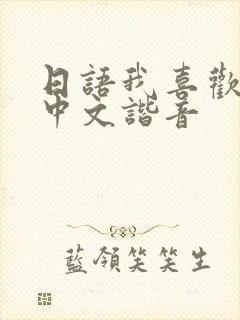 日語我喜歡
中文諧音
藍領笑笑生